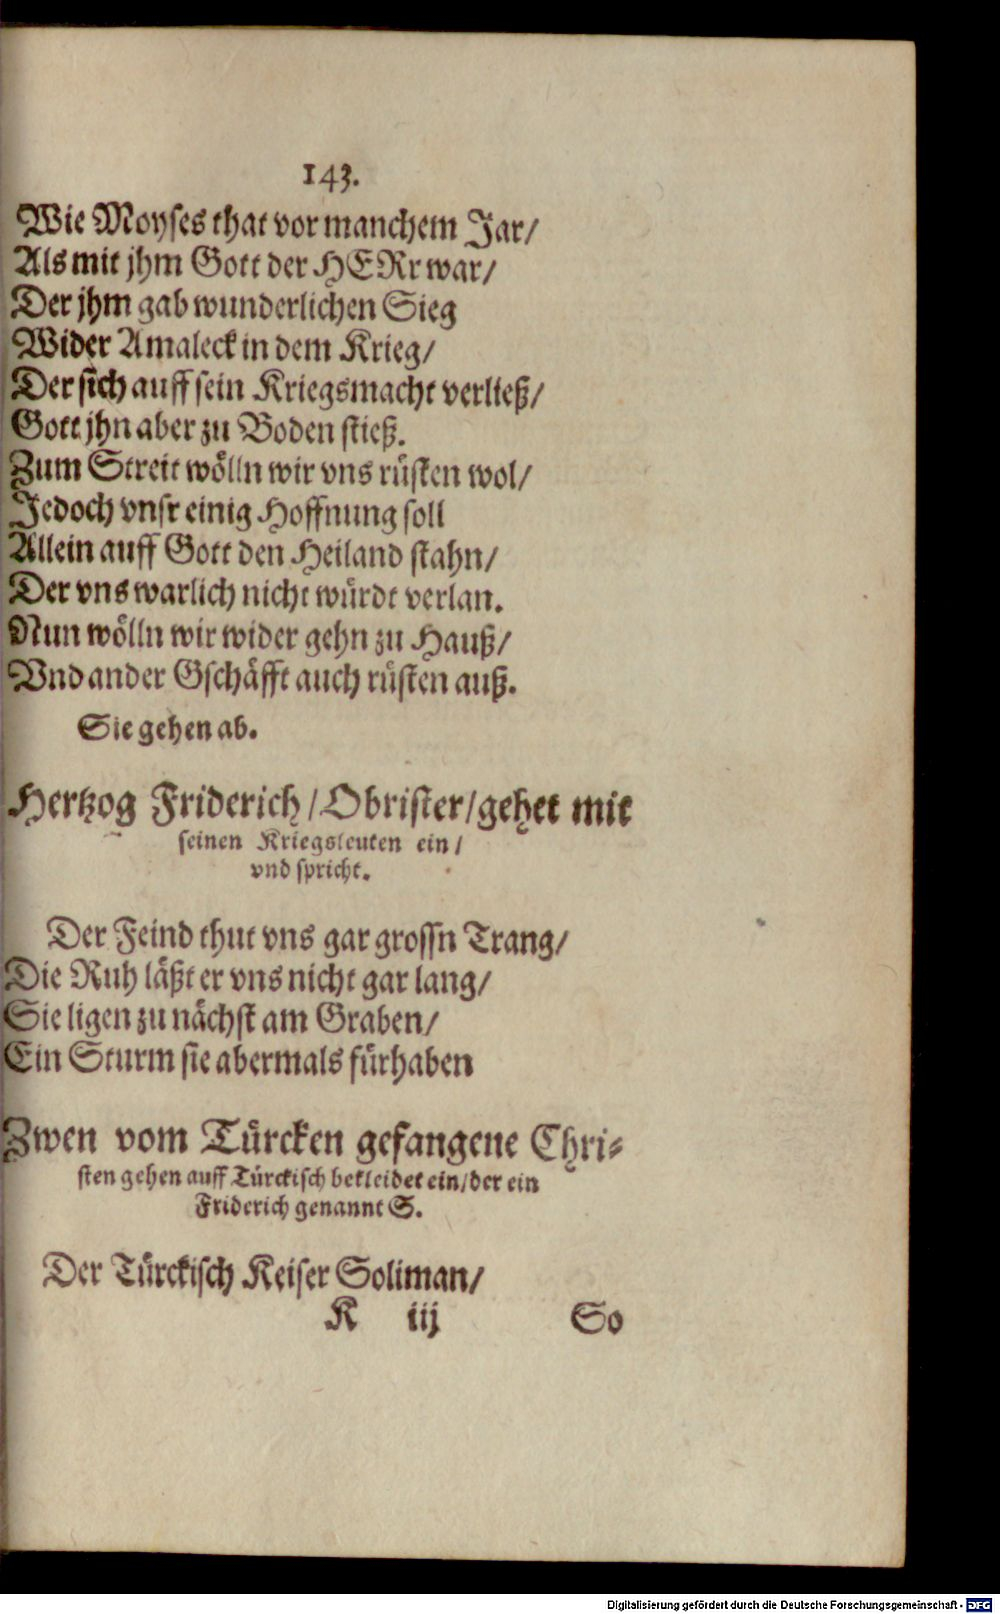 143.
Wie Moyses that vor manchem Jar/
Als mit jhm Gott der HERr war/
Der jhm gab wunderlichen Sieg
Wider Amaleck in dem Krieg/
Der sich auff sein Kriegsmacht verließ/
Gott jhn aber zu Boden stieß.
Zum Streit wölln wir vns rüsten wol/
Jedoch vnsr einig Hoffnung soll
Allein auff Gott den Heiland stahn/
Der vns warlich nicht würdt verlan.
Nun wölln wir wider gehn zu Hauß/
Vnd ander Gschäfft auch rüsten auß.
Sie gehen ab.
Hertzog Friderich/Obrister/gehet mit
seinen Kriegsleuten ein/
vnd spricht.
Der Feind thut vns gar grossn Trang/
Die Ruh läßt er vns nicht gar lang/
Sie ligen zu nächst am Graben/
Ein Sturm sie abermals fürhaben
Zwen vom Türcken gefangene Chri-
sten gehen auff Türckisch bekleidet ein/der ein
Friderich genannt S.
Der Türckisch Keiser Soliman/
K iij So
Digitalisierung gefördert durch die Deutsche Forschungsgemeinschaft - DFG